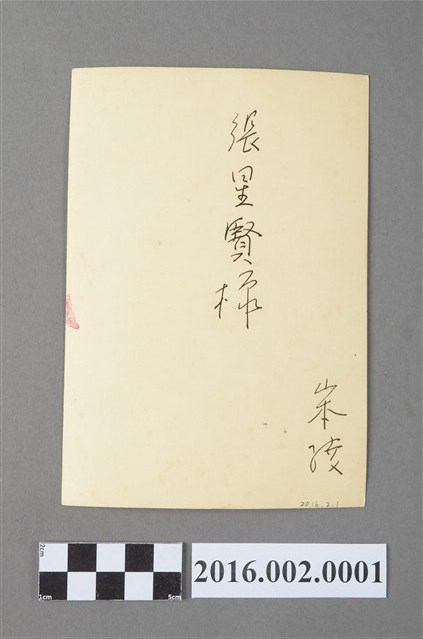 張星賢様
2016.2.1
2cm
1cm
5cm
2016.002.0001